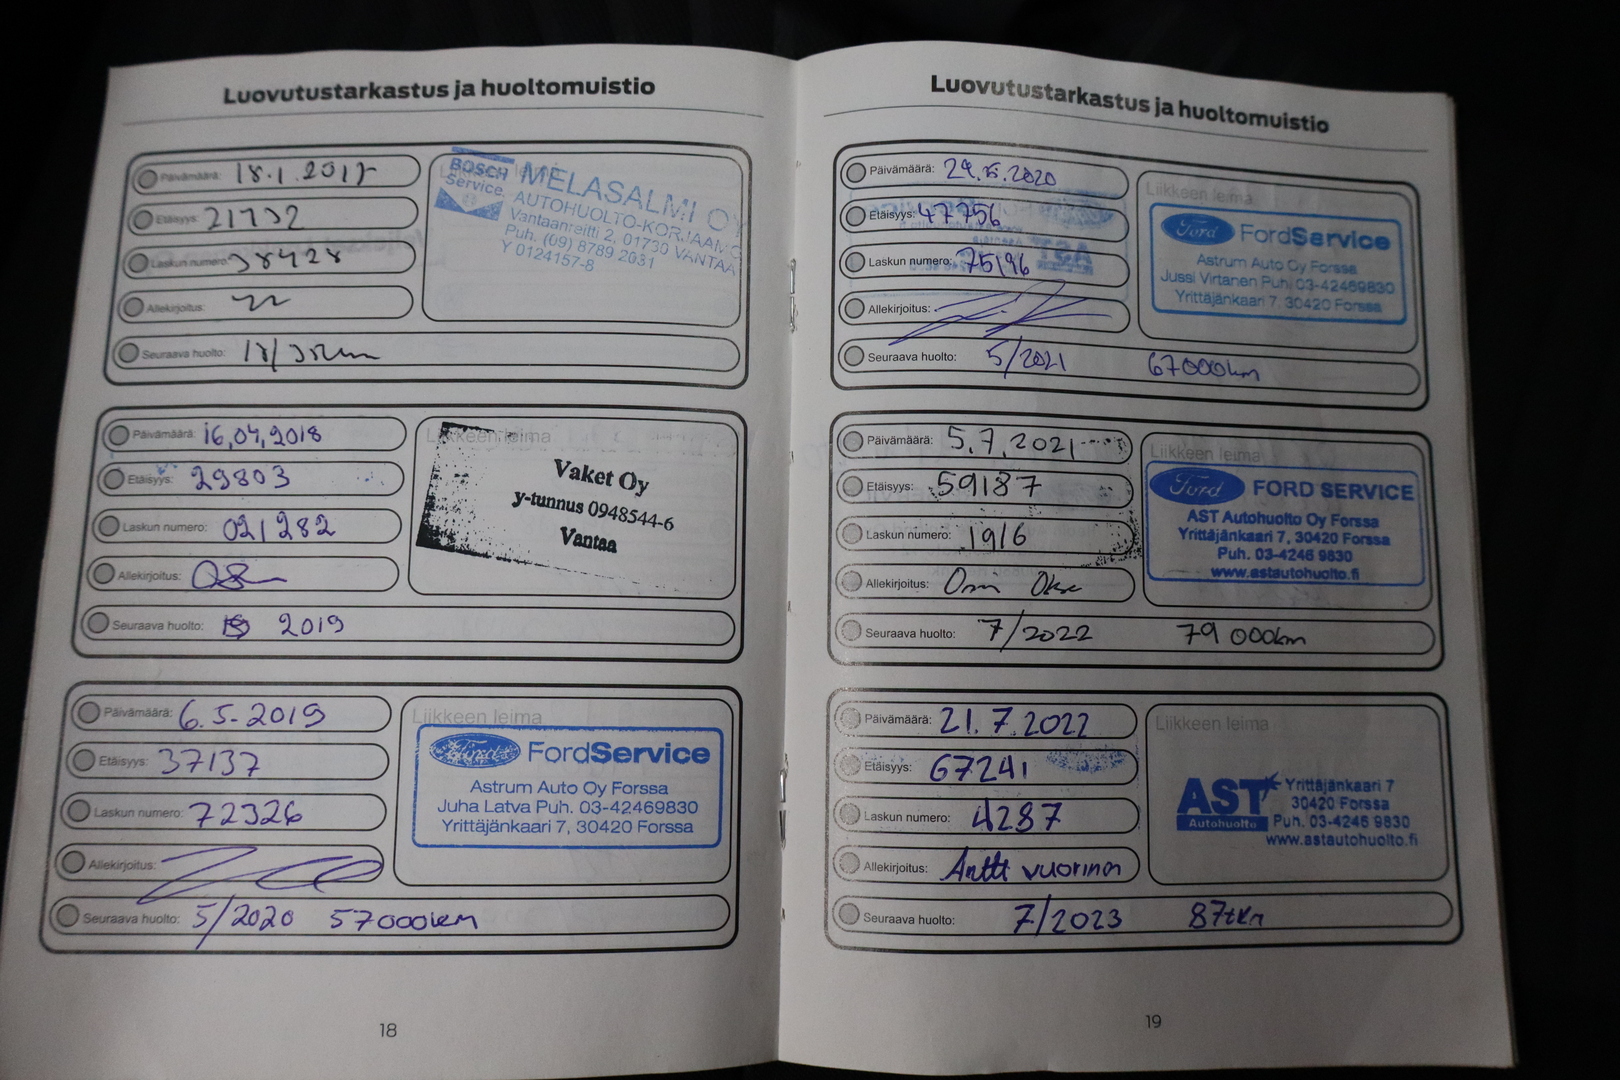 Luovutustarkastus ja huoltomuistio
Päivämäärä: 18.1.2017
Etäisyys: 21732
Laskun numero: 38428
Allekirjoitus:
Seuraava huolto: 18/
BOSCH
Service
MELASALMI OY
AUTOHUOLTO-KORJAAMO
Vantaanreitti 2, 01730 VANTAA
Puh. (09) 8789 2031
Y 0124157-8
Päivämäärä: 16,04,2018
Etäisyys: 29803
Laskun numero: 021282
Allekirjoitus:
Seuraava huolto: 2019
Liikkeen leima
Vaket Oy
y-tunnus 0948544-6
Vantaa
Päivämäärä: 6.5-2019
Etäisyys: 37137
Laskun numero: 72326
Allekirjoitus:
Seuraava huolto: 5/2020 57000km
Liikkeen leima
Ford FordService
Astrum Auto Oy Forssa
Juha Latva Puh. 03-42469830
Yrittäjänkaari 7, 30420 Forssa
18
Luovutustarkastus ja huoltomuistio
Päivämäärä: 2020
Etäisyys: 47756
Laskun numero: 75196
Allekirjoitus:
Seuraava huolto: 5/2021 67000km
Liikkeen leima
Ford FordService
Astrum Auto Oy Forssa
Jussi Virtanen Puh. 03-42469830
Yrittäjänkaari 7, 30420 Forssa
Päivämäärä: 5.7.2021
Etäisyys: 59187
Laskun numero: 1916
Allekirjoitus:
Seuraava huolto: 7/2022 79 000km
Liikkeen leima
Ford FORD SERVICE
AST Autohuolto Oy Forssa
Yrittäjänkaari 7, 30420 Forssa
Puh. 03-4246 9830
www.astautohuolto.fi
Päivämäärä: 21.7.2022
Etäisyys: 67241
Laskun numero: 4287
Allekirjoitus: Antti vuorinen
Seuraava huolto: 7/2023 87tkm
Liikkeen leima
AST
Autohuolto
Yrittäjänkaari 7
30420 Forssa
Puh. 03-4246 9830
www.astautohuolto.fi
19